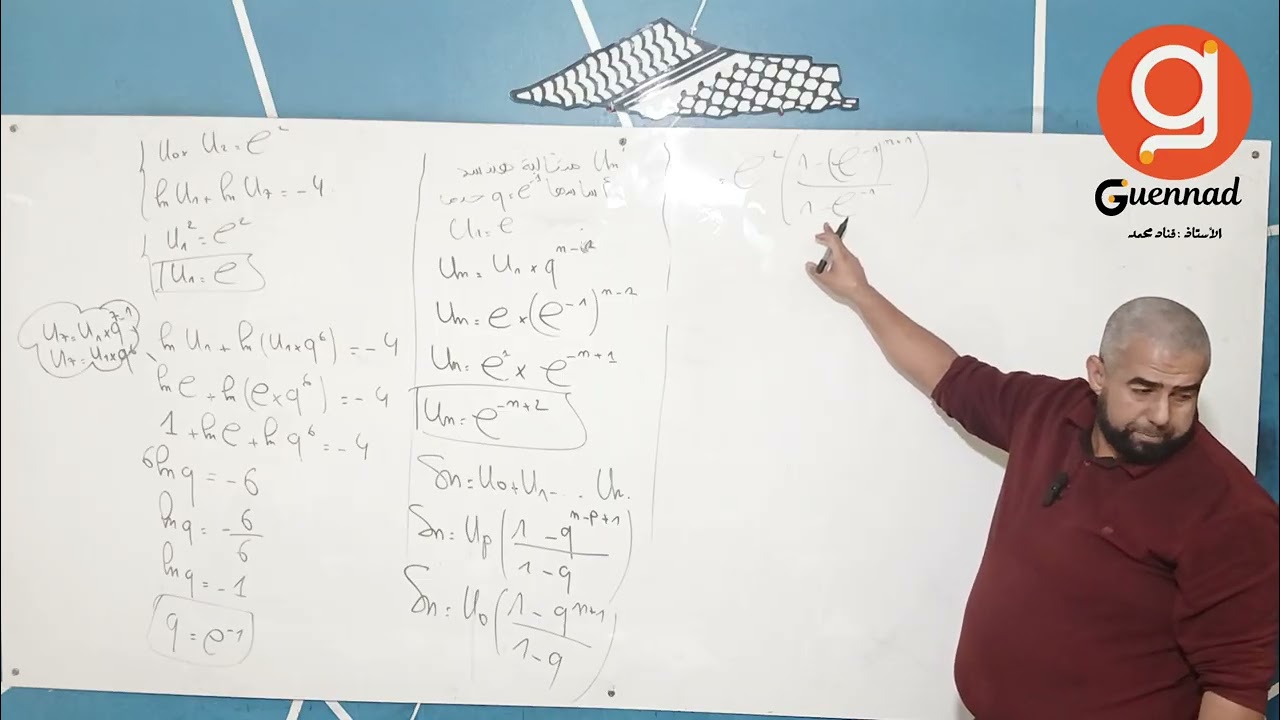 U₀ × U₂ = e²
ln U₁ + ln U₇ = -4
U₁² = e²
U₁ = e
U₇ = U₁ × q⁷⁻¹
U₇ = U₁ × q⁶
ln U₁ + ln (U₁ × q⁶) = -4
ln e + ln (e × q⁶) = -4
1 + ln e + ln q⁶ = -4
6 ln q = -6
ln q = -6/6
ln q = -1
q = e⁻¹
Un متتالية هندسية
أساسها q = e⁻¹ حدها
U₁ = e
Un = U₁ × qⁿ⁻¹
Un = e × (e⁻¹)ⁿ⁻¹
Un = e¹ × e⁻ⁿ⁺¹
Un = e⁻ⁿ⁺²
Sn = U₀ + U₁ - ... Un.
Sn = Up (1 - qⁿ⁻ᵖ⁺¹ / 1 - q)
Sn = U₀ (1 - qⁿ⁺¹ / 1 - q)
= e² (1 - (e⁻¹)ⁿ⁺¹ / 1 - e⁻¹)
g
Guennad
الأستاذ : قناد محمد